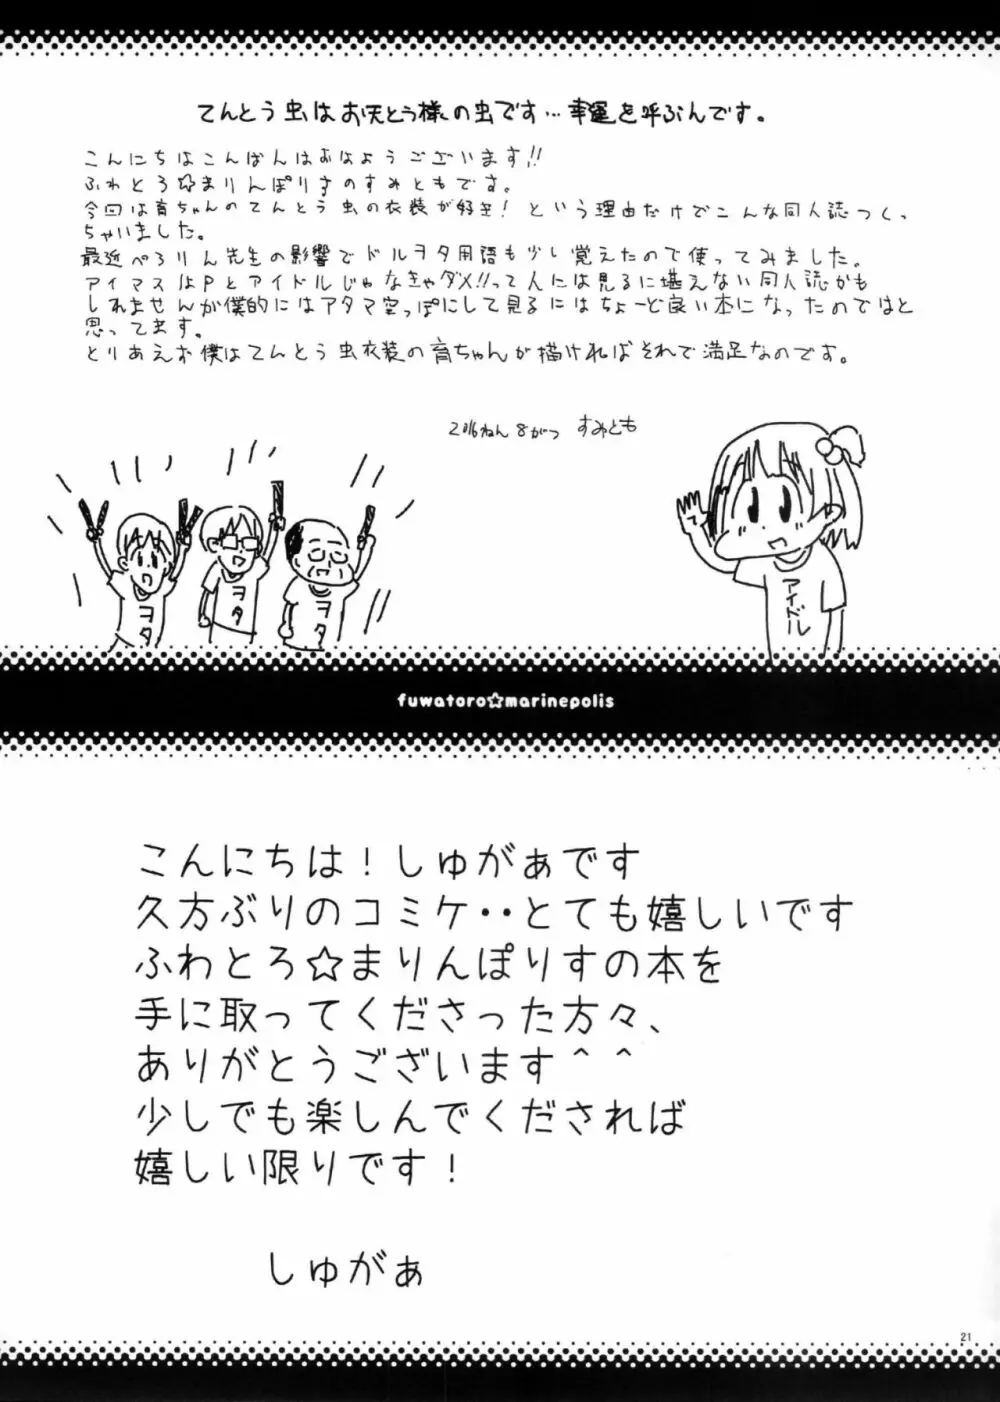 てんとう虫はお天とう様の虫です…幸運を呼ぶんです。
こんにちはこんばんはおはようございます!!
ふわとろ☆まりんぽりすのすみともです。
今回は育ちゃんのてんとう虫の衣装が好き!という理由だけでこんな同人誌つくっ
ちゃいました。
最近ぺろりん先生の影響でドルヲタ用語も少し覚えたので使ってみました。
アイマスはPとアイドルじゃなきゃダメ!!って人には見るに堪えない同人誌かも
しれませんが僕的にはアタマ空っぽにして見るにはちょーど良い本になったのではと
思ってます。
とりあえず僕はてんとう虫衣装の育ちゃんが描ければそれで満足なのです。
2016ねん8がつ すみとも
ヲタ
ヲタ
ヲタ
アイドル
fuwatoro☆marinepolis
こんにちは!しゅがぁです
久方ぶりのコミケ・・とても嬉しいです
ふわとろ☆まりんぽりすの本を
手に取ってくださった方々、
ありがとうございます＾＾
少しでも楽しんでくだされば
嬉しい限りです!
しゅがぁ
21